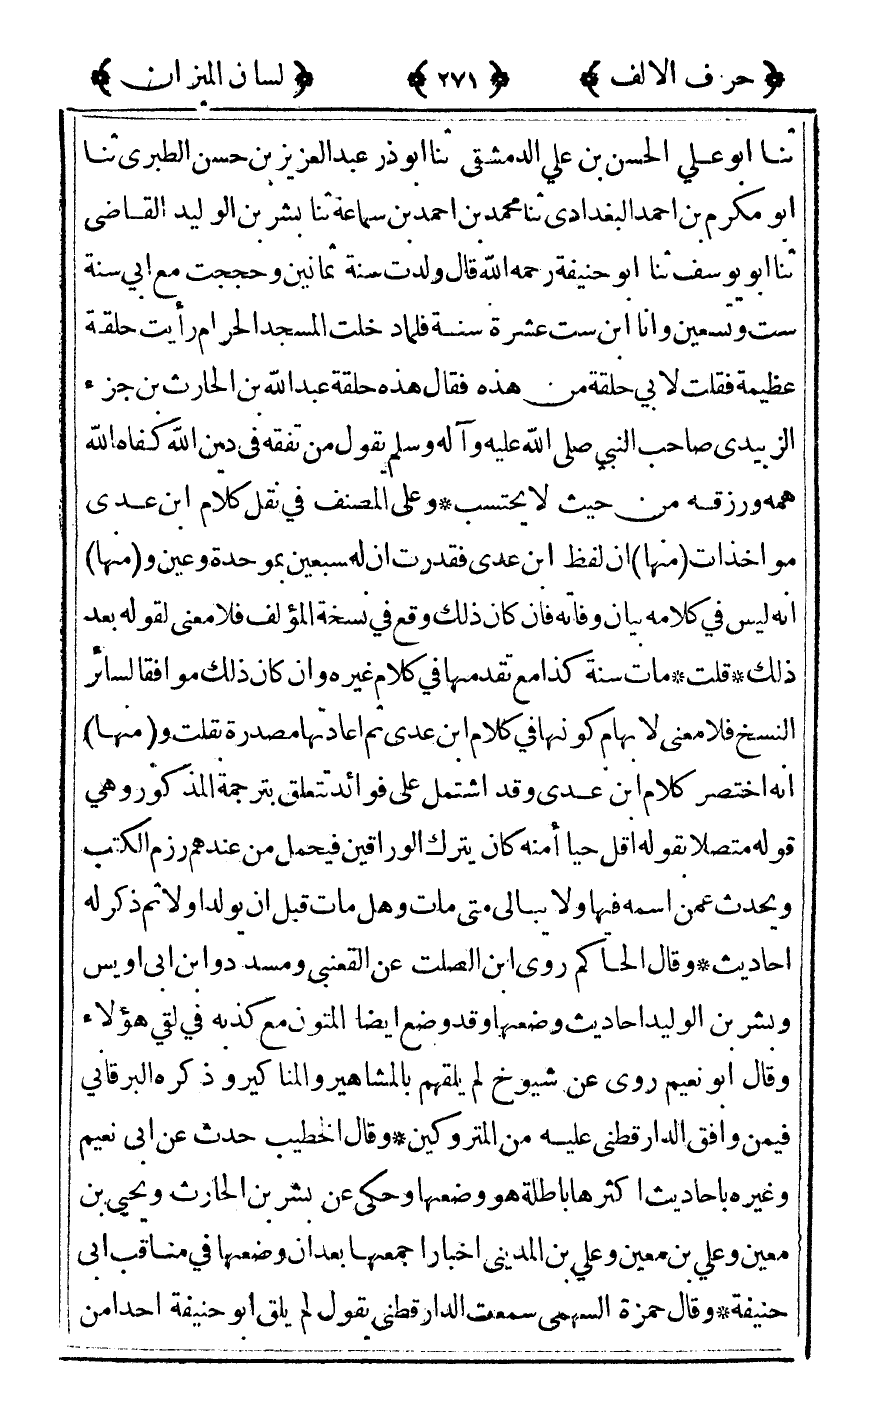 ﴿ حرف الالف ﴾ ﴿ ٢٧١ ﴾ ﴿ لسان الميزان ﴾
ثنا ابو علي الحسن بن علي الدمشقي ثنا ابو ذر عبد العزيز بن حسن الطبرى ثنا
ابو مكرم بن احمد البغدادى ثنا محمد بن احمد بن سماعة ثنا بشر بن الوليد القاضى
ثنا ابو يوسف ثنا ابو حنيفة رحمه الله قال ولدت سنة ثمانين وحججت مع ابي سنة
ست وتسعين وانا ابن ست عشرة سنة فلما دخلت المسجد الحرام رأيت حلقة
عظيمة فقلت لابي حلقة من هذه فقال هذه حلقة عبد الله بن الحارث بن جزء
الزبيدى صاحب النبي صلى الله عليه وآله وسلم يقول من تفقه في دين الله كفاه الله
همه ورزقه من حيث لا يحتسب * وعلى المصنف في نقل كلام ابن عدى
مواخذات (منها) ان لفظ ابن عدى فقدرت ان له سبعين بموحدة وعين و (منها)
انه ليس في كلامه بيان وفاته فان كان ذلك وقع في نسخة المؤلف فلا معنى لقوله بعد
ذلك * قلت * مات سنة كذا مع تقدمها في كلام غيره وان كان ذلك موافقا لسائر
النسخ فلا معنى لايهام كونها في كلام ابن عدى ثم اعادتها مصدرة بقلت و (منها)
انه اختصر كلام ابن عدى وقد اشتمل على فوائد تتعلق بترجمة المذكور وهي
قوله متصلا بقوله اقل حيا أمنه كان يترك الوراقين فيحمل من عندهم رزم الكتب
ويحدث عمن اسمه فيها ولا يبالى متى مات وهل مات قبل ان يولد او لا ثم ذكر له
احاديث * وقال الحاكم روى ابن الصلت عن القعنبي ومسدد وابن ابى اويس
وبشر بن الوليد احاديث وضعها وقد وضع ايضا المتون مع كذبه في لقي هؤلاء
وقال ابو نعيم روى عن شيوخ لم يلقهم بالمشاهير والمناكير وذكره البرقاني
فيمن وافق الدارقطنى عليه من المتروكين * وقال الخطيب حدث عن ابى نعيم
وغيره باحاديث اكثرها باطلة هو وضعها وحكى عن بشر بن الحارث ويحيى بن
معين وعلي بن معين وعلي بن المدينى اخبارا جمعها بعد ان وضعها في مناقب ابى
حنيفة * وقال حمزة السهمى سمعت الدارقطنى يقول لم يلق ابو حنيفة احدا من